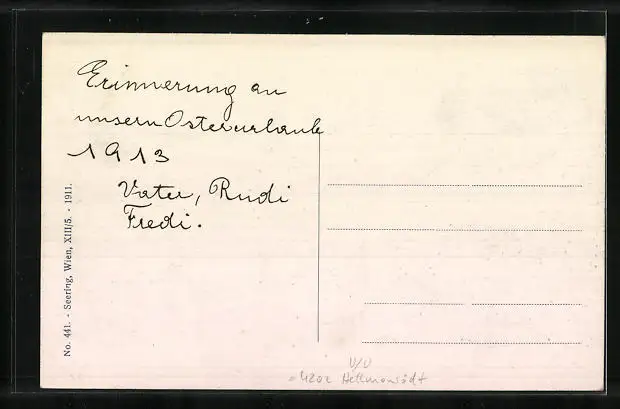 Erinnerung an
unsern Osterurlaub
1913
Vater, Rudi
Fredi.
No. 441. - Seering, Wien, XIII/5. - 1911.
U/U
4202 Hellmonsödt